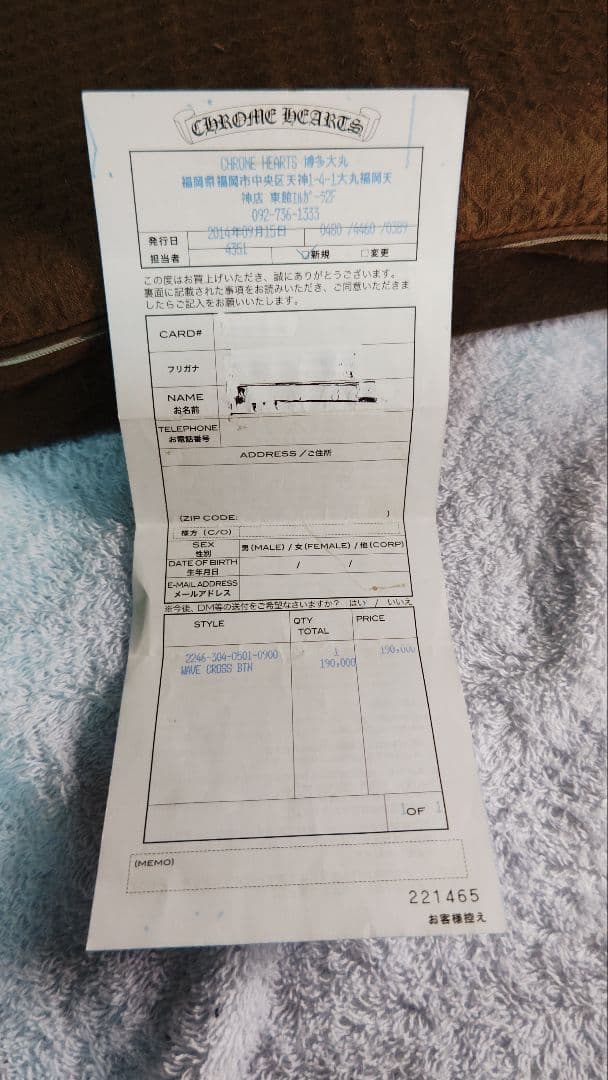 CHROME HEARTS
CHROME HEARTS 博多大丸
福岡県福岡市中央区天神1-4-1大丸福岡天
神店 東館ｴﾙｶﾞｰﾗ2F
092-736-1333
発行日 2014年09月15日 0480 /4460 /0389
担当者 4351 新規 変更
この度はお買上げいただき、誠にありがとうございます。
裏面に記載された事項をお読みいただき、ご同意いただきま
したらご記入をお願いいたします。
CARD#
フリガナ
NAME
お名前
TELEPHONE
お電話番号
ADDRESS／ご住所
(ZIP CODE: )
様方 (C/O)
SEX
性別
男(MALE) / 女(FEMALE) / 他(CORP)
DATE OF BIRTH
生年月日
/ /
E-MAIL ADDRESS
メールアドレス
※今後、DM等の送付をご希望なさいますか？ はい / いいえ
STYLE QTY PRICE
TOTAL
2246-304-0501-0900 1 190,000
WAVE CROSS BTN 190,000
1 OF 1
(MEMO)
221465
お客様控え